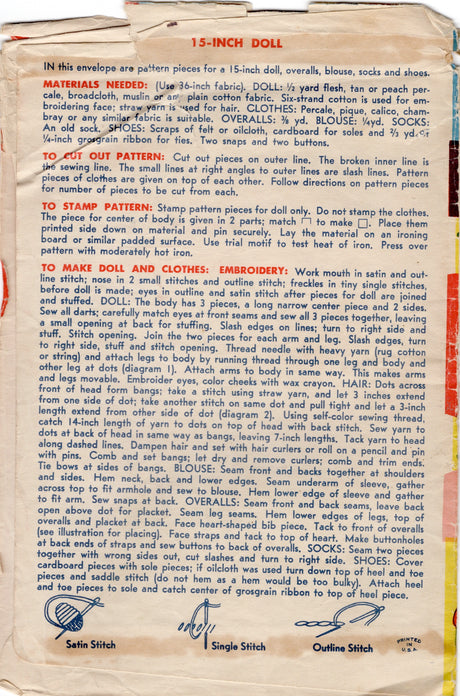 15-INCH DOLL
IN this envelope are pattern pieces for a 15-inch doll, overalls, blouse, socks and shoes.
MATERIALS NEEDED: (Use 36-inch fabric). DOLL: ½ yard flesh, tan or peach per-
cale, broadcloth, muslin or any plain cotton fabric. Six-strand cotton is used for em-
broidering face; straw yarn is used for hair. CLOTHES: Percale, pique, calico, cham-
bray or any similar fabric is suitable. OVERALLS: ⅜ yd. BLOUSE: ¼yd. SOCKS:
An old sock. SHOES: Scraps of felt or oilcloth, cardboard for soles and ⅔ yd. of
¼-inch grosgrain ribbon for ties. Two snaps and two buttons.
TO CUT OUT PATTERN: Cut out pieces on outer line. The broken inner line is
the sewing line. The small lines at right angles to outer lines are slash lines. Pattern
pieces of clothes are given on top of each other. Follow directions on pattern pieces
for number of pieces to be cut from each.
TO STAMP PATTERN: Stamp pattern pieces for doll only. Do not stamp the clothes.
The piece for center of body is given in 2 parts; match to make □. Place them
printed side down on material and pin securely. Lay the material on an ironing
board or similar padded surface. Use trial motif to test heat of iron. Press over
pattern with moderately hot iron.
TO MAKE DOLL AND CLOTHES: EMBROIDERY: Work mouth in satin and out-
line stitch; nose in 2 small stitches and outline stitch; freckles in tiny single stitches,
before doll is made; eyes in outline and satin stitch after pieces for doll are joined
and stuffed. DOLL: The body has 3 pieces, a long narrow center piece and 2 sides.
Sew all darts; carefully match eyes at front seams and sew all 3 pieces together, leaving
a small opening at back for stuffing. Slash edges on lines; turn to right side and
stuff. Stitch opening. Join the two pieces for each arm and leg. Slash edges, turn
to right side, stuff and stitch opening. Thread needle with heavy yarn (rug cotton
or string) and attach legs to body by running thread through one leg and body and
other leg at dots (diagram 1). Attach arms to body in same way. This makes arms
and legs movable. Embroider eyes, color cheeks with wax crayon. HAIR: Dots across
front of head form bangs; take a stitch using straw yarn, and let 3 inches extend
from one side of dot; take another stitch on same dot and pull tight and let a 3-inch
length extend from other side of dot (diagram 2). Using self-color sewing thread,
catch 14-inch length of yarn to dots on top of head with back stitch. Sew yarn to
dots at back of head in same way as bangs, leaving 7-inch lengths. Tack yarn to head
along dashed lines. Dampen hair and set with hair curlers or roll on a pencil and pin
with pins. Comb and set bangs; let dry and remove curlers; comb and trim ends.
Tie bows at sides of bangs. BLOUSE: Seam front and backs together at shoulders
and sides. Hem neck, back and lower edges. Seam underarm of sleeve, gather
across top to fit armhole and sew to blouse. Hem lower edge of sleeve and gather
to fit arm. Sew snaps at back. OVERALLS: Seam front and back seams, leave back
open above dot for placket. Seam leg seams. Hem lower edges of legs, top of
overalls and placket at back. Face heart-shaped bib piece. Tack to front of overalls
(see illustration for placing). Face straps and tack to top of heart. Make buttonholes
at back ends of straps and sew buttons to back of overalls. SOCKS: Seam two pieces
together with wrong sides out, cut slashes and turn to right side. SHOES: Cover
cardboard pieces with sole pieces; if oilcloth was used turn down top of heel and toe
pieces and saddle stitch (do not hem as a hem would be too bulky). Attach heel
and toe pieces to sole and catch center of grosgrain ribbon to top of heel piece.
Satin Stitch
Single Stitch
Outline Stitch
PRINTED
IN
U.S.A.